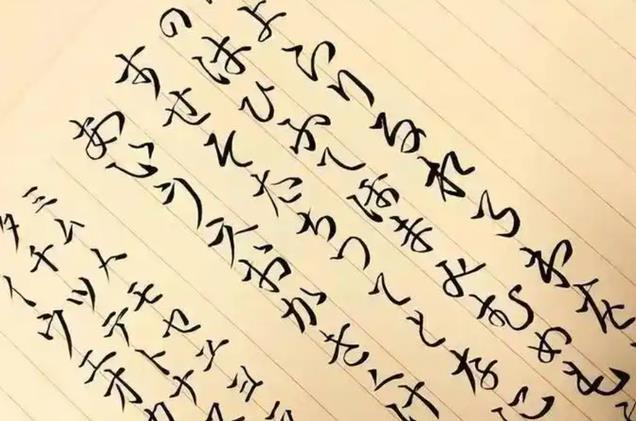 よらりるれろわを
のはひふへほまみむめも
すせそたちつてとなに
あいうえおかきくけ
ミムメモヤユヨ
タチツテトナ
イウエオカ